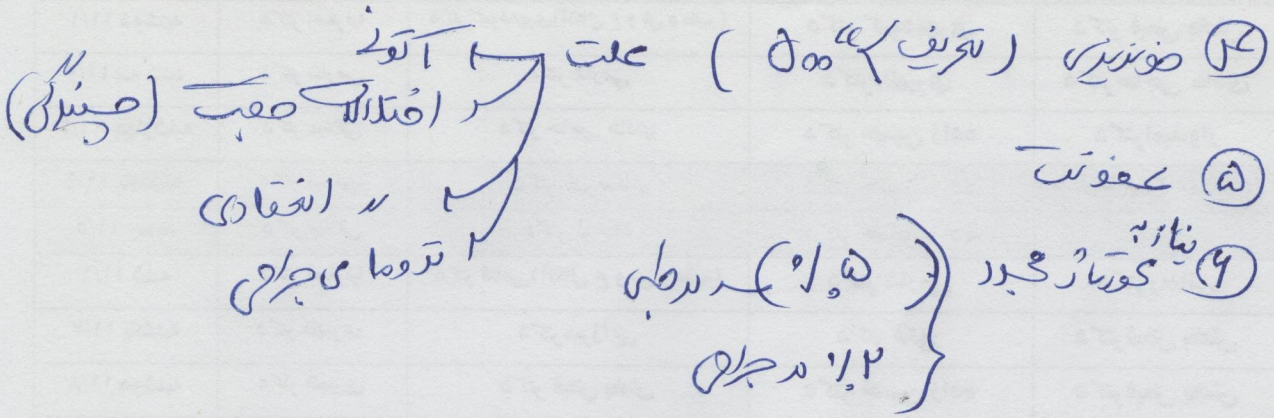 ④ خونریزی (تعریف > ۵۰۰ cc) علت → آتونی
→ اختلالات جفت (چسبندگی)
→ 〃 انعقادی
→ ترومای جراحی
⑤ عفونت
⑥ نیاز به کورتاژ مجدد { (۵٪) در طبی
۲٪ در جراحی